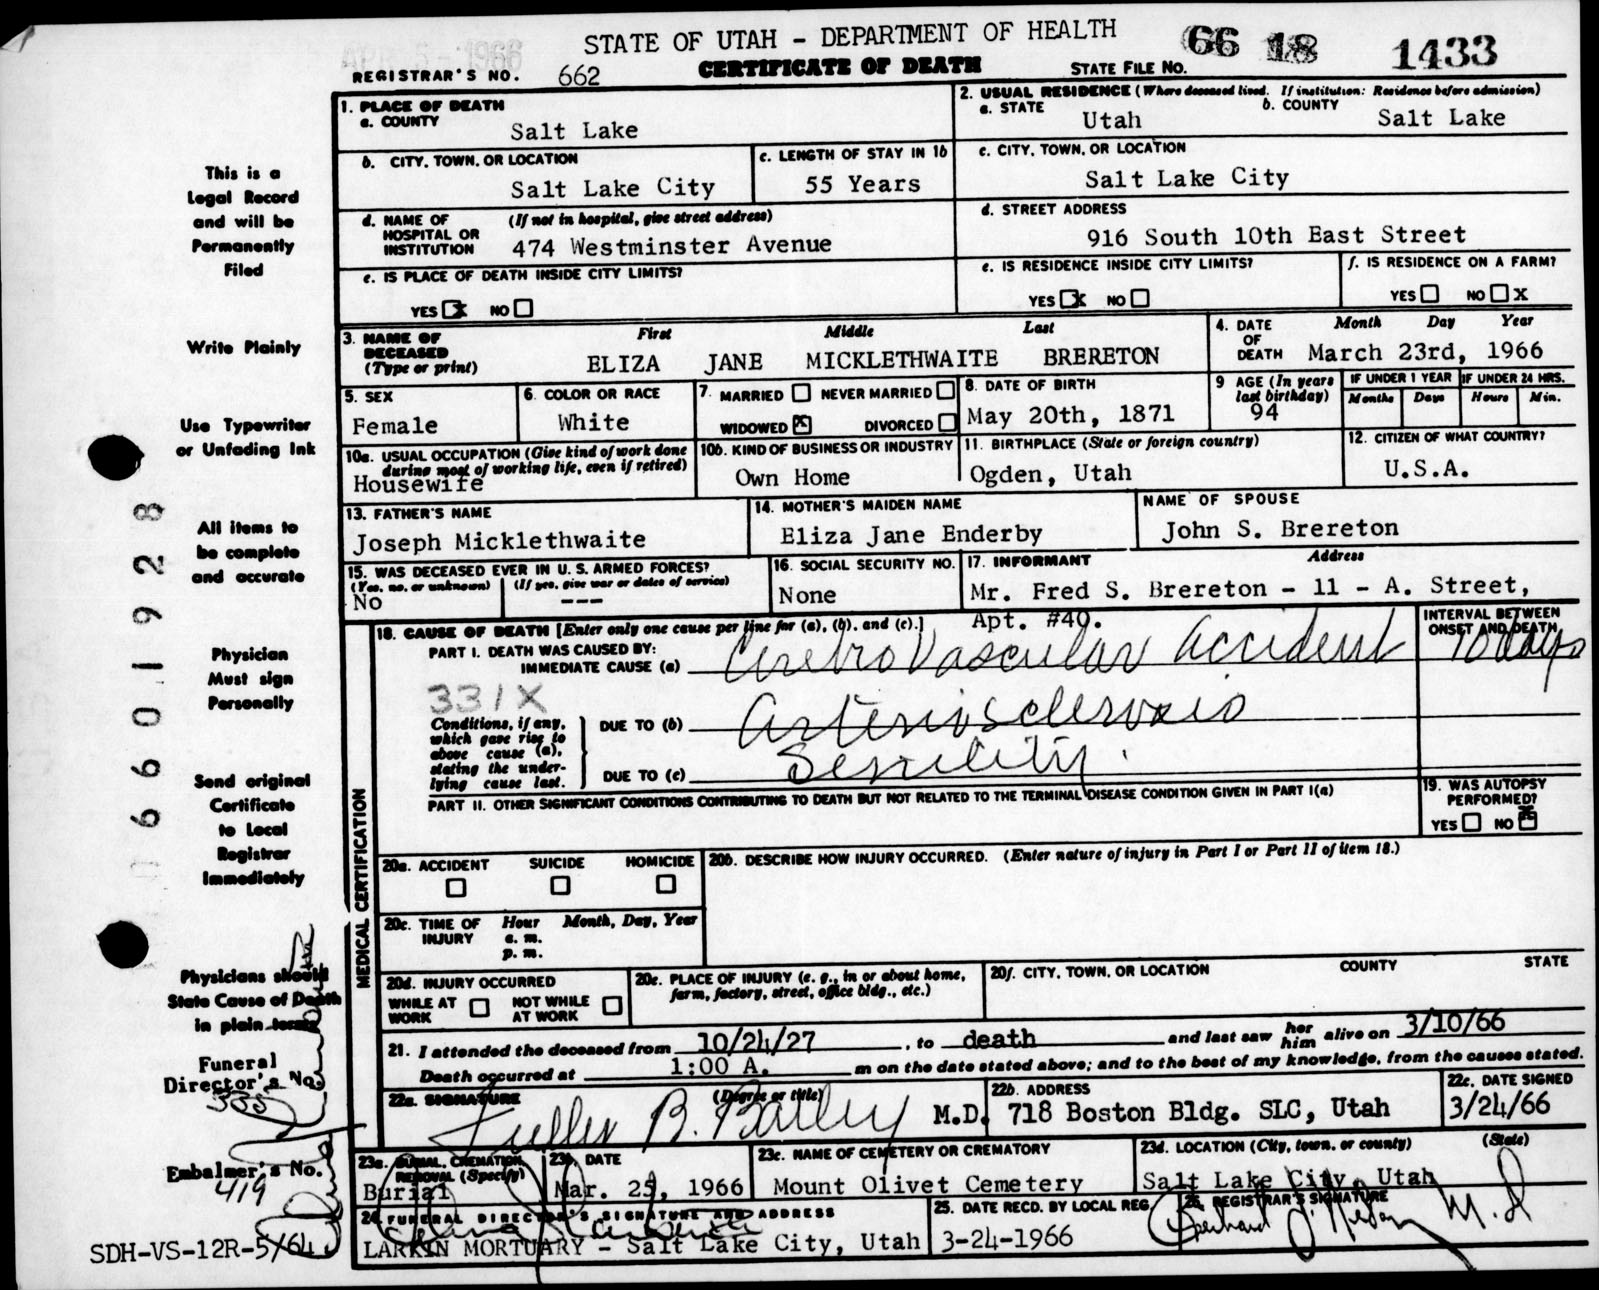 STATE OF UTAH - DEPARTMENT OF HEALTH
APR 5 - 1966
REGISTRAR'S NO. 662
CERTIFICATE OF DEATH
STATE FILE NO. 66 18 1433
1. PLACE OF DEATH
a. COUNTY
Salt Lake
2. USUAL RESIDENCE (Where deceased lived. If institution: Residence before admission)
a. STATE
Utah
b. COUNTY
Salt Lake
b. CITY, TOWN, OR LOCATION
Salt Lake City
c. LENGTH OF STAY IN 1b
55 Years
c. CITY, TOWN, OR LOCATION
Salt Lake City
d. NAME OF HOSPITAL OR INSTITUTION
(If not in hospital, give street address)
474 Westminster Avenue
d. STREET ADDRESS
916 South 10th East Street
e. IS PLACE OF DEATH INSIDE CITY LIMITS?
YES X NO
e. IS RESIDENCE INSIDE CITY LIMITS?
YES X NO
f. IS RESIDENCE ON A FARM?
YES NO X
3. NAME OF DECEASED (Type or print)
First Middle Last
ELIZA JANE MICKLETHWAITE BRERETON
4. DATE OF DEATH
Month Day Year
March 23rd, 1966
5. SEX
Female
6. COLOR OR RACE
White
7. MARRIED NEVER MARRIED
WIDOWED X DIVORCED
8. DATE OF BIRTH
May 20th, 1871
9 AGE (In years last birthday)
94
IF UNDER 1 YEAR
Months Days
IF UNDER 24 HRS.
Hours Min.
10a. USUAL OCCUPATION (Give kind of work done during most of working life, even if retired)
Housewife
10b. KIND OF BUSINESS OR INDUSTRY
Own Home
11. BIRTHPLACE (State or foreign country)
Ogden, Utah
12. CITIZEN OF WHAT COUNTRY?
U.S.A.
13. FATHER'S NAME
Joseph Micklethwaite
14. MOTHER'S MAIDEN NAME
Eliza Jane Enderby
NAME OF SPOUSE
John S. Brereton
15. WAS DECEASED EVER IN U. S. ARMED FORCES?
(Yes, no, or unknown) (If yes, give war or dates of service)
No ---
16. SOCIAL SECURITY NO.
None
17. INFORMANT Address
Mr. Fred S. Brereton - 11 - A. Street,
Apt. #40.
18. CAUSE OF DEATH [Enter only one cause per line for (a), (b), and (c).]
INTERVAL BETWEEN ONSET AND DEATH
PART I. DEATH WAS CAUSED BY:
IMMEDIATE CAUSE (a) Cerebro Vascular accident 10 days
331X
Conditions, if any, which gave rise to above cause (a), stating the underlying cause last.
DUE TO (b) arteriosclerosis
DUE TO (c) Senility.
PART II. OTHER SIGNIFICANT CONDITIONS CONTRIBUTING TO DEATH BUT NOT RELATED TO THE TERMINAL DISEASE CONDITION GIVEN IN PART I(a)
19. WAS AUTOPSY PERFORMED?
YES NO X
MEDICAL CERTIFICATION
20a. ACCIDENT SUICIDE HOMICIDE
20b. DESCRIBE HOW INJURY OCCURRED. (Enter nature of injury in Part I or Part II of item 18.)
20c. TIME OF INJURY
Hour Month, Day, Year
a. m.
p. m.
20d. INJURY OCCURRED
WHILE AT WORK NOT WHILE AT WORK
20e. PLACE OF INJURY (e. g., in or about home, farm, factory, street, office bldg., etc.)
20f. CITY, TOWN, OR LOCATION COUNTY STATE
21. I attended the deceased from 10/24/27, to death and last saw her him alive on 3/10/66
Death occurred at 1:00 A. m on the date stated above; and to the best of my knowledge, from the causes stated.
22a. SIGNATURE (Degree or title)
Fuller B. Bailey M.D.
22b. ADDRESS
718 Boston Bldg. SLC, Utah
22c. DATE SIGNED
3/24/66
23a. BURIAL, CREMATION, REMOVAL (Specify)
Burial
23b. DATE
Mar. 25, 1966
23c. NAME OF CEMETERY OR CREMATORY
Mount Olivet Cemetery
23d. LOCATION (City, town, or county) (State)
Salt Lake City, Utah
24. FUNERAL DIRECTOR'S SIGNATURE AND ADDRESS
LARKIN MORTUARY - Salt Lake City, Utah
25. DATE RECD. BY LOCAL REG.
3-24-1966
26. REGISTRAR'S SIGNATURE
M.D
This is a
Legal Record
and will be
Permanently
Filed
Write Plainly
Use Typewriter
or Unfading Ink
All items to
be complete
and accurate
Physician
Must sign
Personally
Send original
Certificate
to Local
Registrar
Immediately
Physicians should
State Cause of Death
in plain terms
Funeral
Director's No.
Embalmer's No.
419
SDH-VS-12R-5/64
06601928